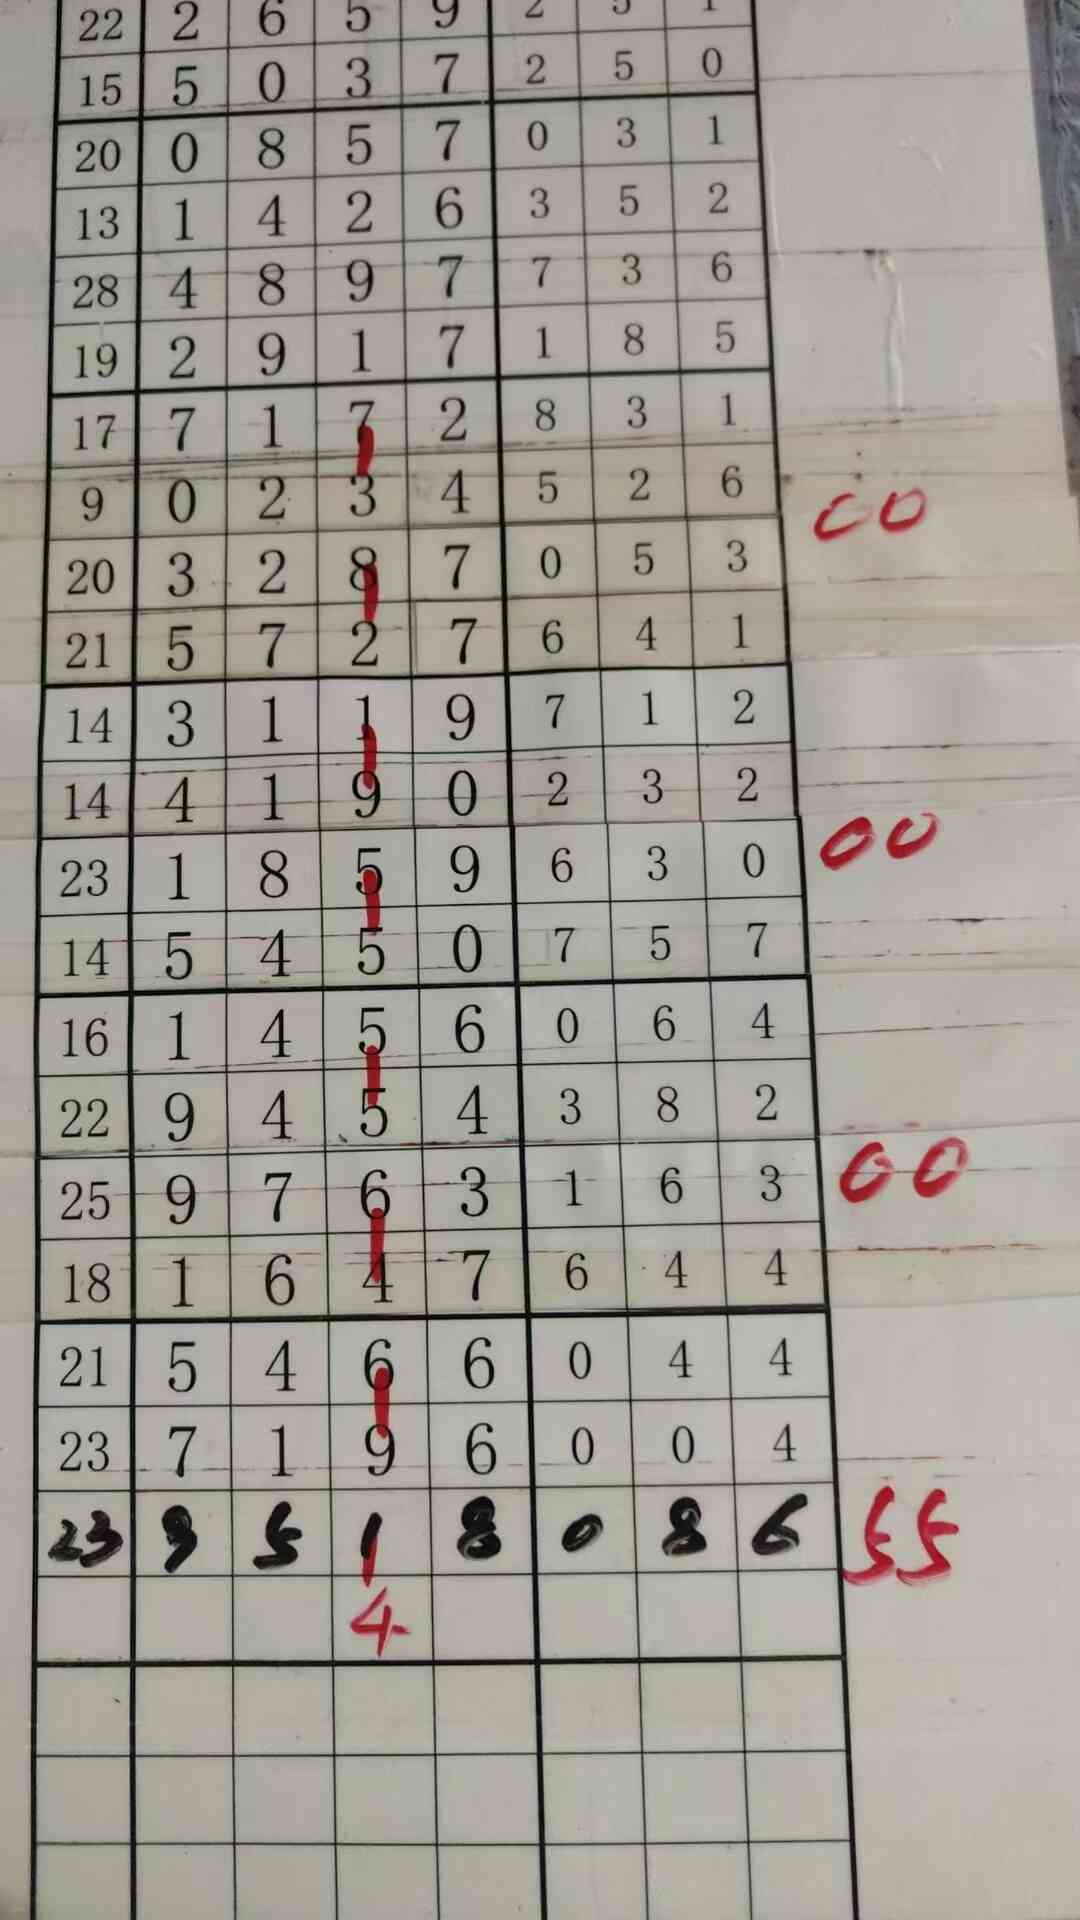 22 2 6 5 9 2 5 1
15 5 0 3 7 2 5 0
20 0 8 5 7 0 3 1
13 1 4 2 6 3 5 2
28 4 8 9 7 7 3 6
19 2 9 1 7 1 8 5
17 7 1 7 2 8 3 1
9 0 2 3 4 5 2 6 00
20 3 2 8 7 0 5 3
21 5 7 2 7 6 4 1
14 3 1 1 9 7 1 2
14 4 1 9 0 2 3 2 00
23 1 8 5 9 6 3 0
14 5 4 5 0 7 5 7
16 1 4 5 6 0 6 4
22 9 4 5 4 3 8 2
25 9 7 6 3 1 6 3 00
18 1 6 4 7 6 4 4
21 5 4 6 6 0 4 4
23 7 1 9 6 0 0 4
23 9 5 1 8 0 8 6 55
4